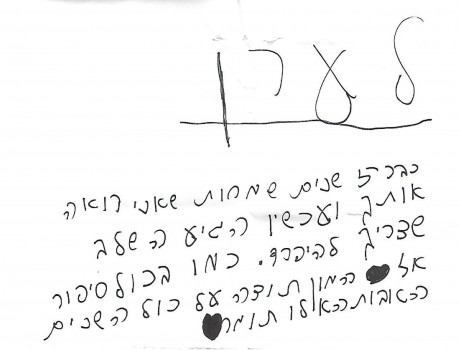 לערן
כבר 5 שנים שמחות שאני רואה
אותך ועכשיו הגיע השלב
שצריך להיפרד. כמו בכול סיפור
אז המון תודה על כול השנים
הטובות האילו תומר